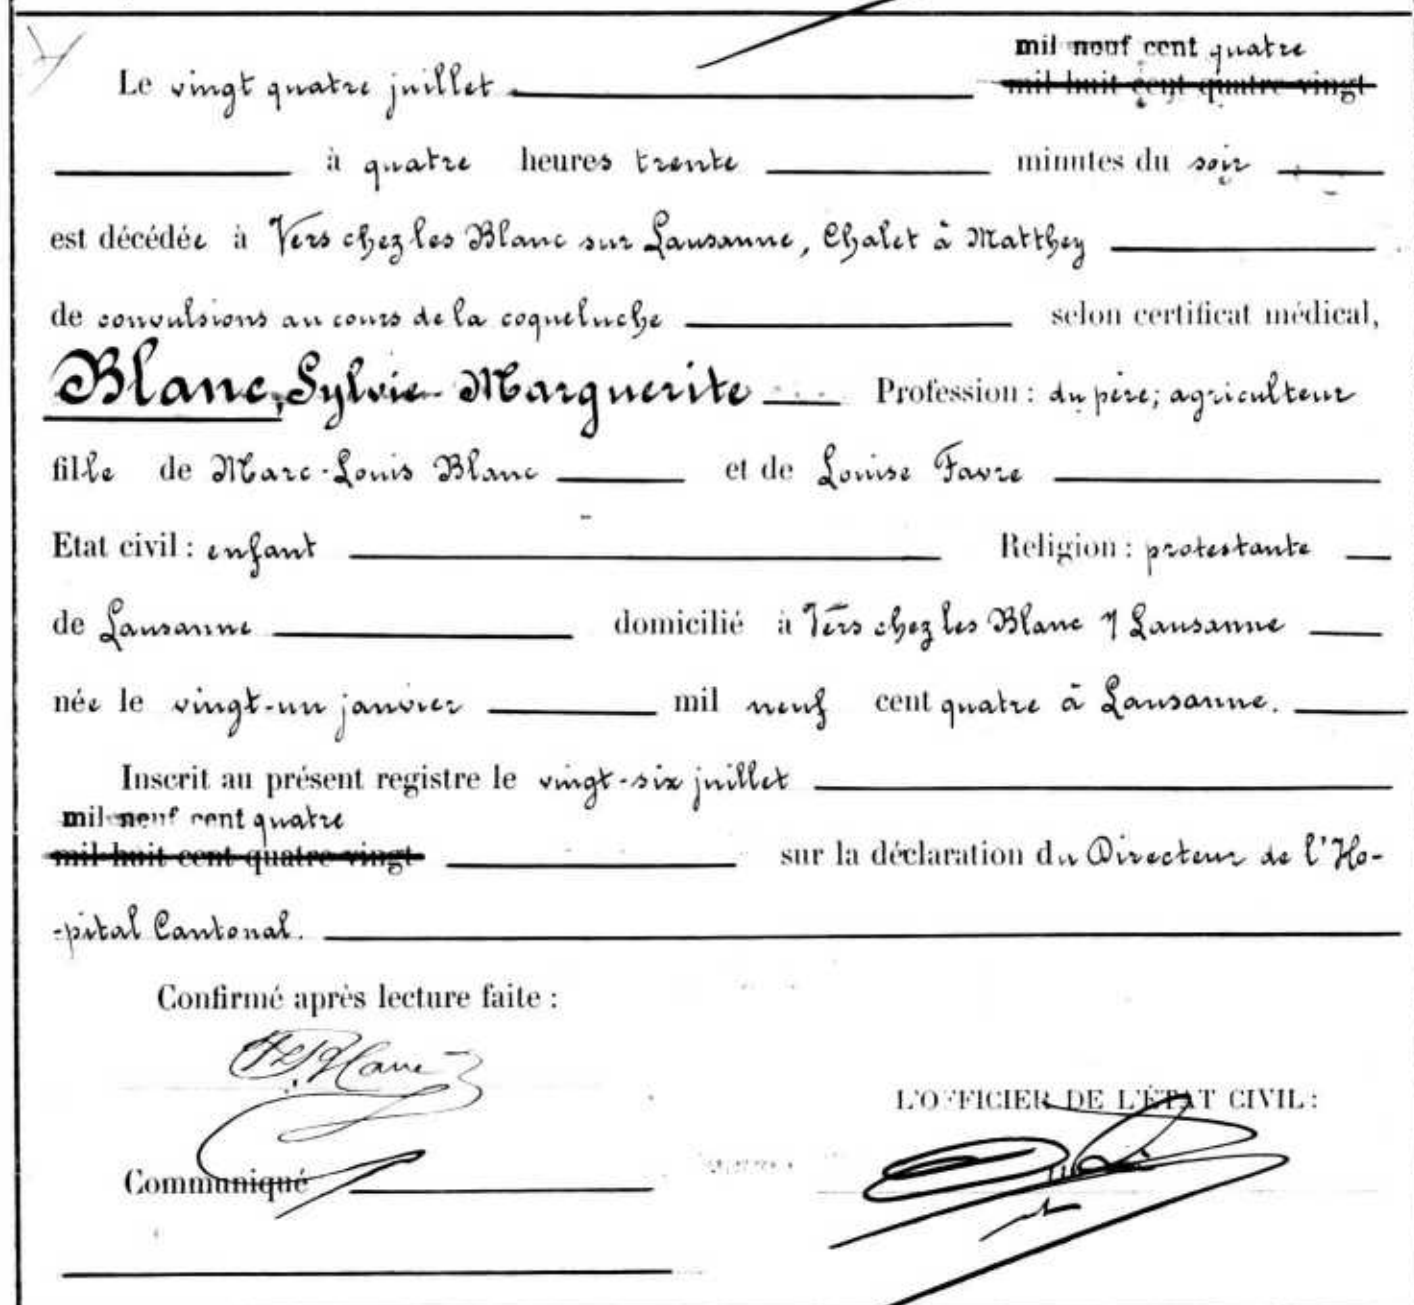 mil neuf cent quatre
Le vingt quatre juillet mil huit cent quatre vingt
à quatre heures trente minutes du soir
est décédée à Vers chez les Blanc sur Lausanne, Chalet à Matthey
de convulsions au cours de la coqueluche selon certificat médical,
Blanc, Sylvie Marguerite Profession : du père; agriculteur
fille de Marc-Louis Blanc et de Louise Favre
Etat civil : enfant Religion : protestante
de Lausanne domicilié à Vers chez les Blanc / Lausanne
née le vingt-un janvier mil neuf cent quatre à Lausanne.
Inscrit au présent registre le vingt-six juillet
mil neuf cent quatre
mil huit cent quatre vingt sur la déclaration du Directeur de l'Ho-
-pital Cantonal.
Confirmé après lecture faite :
Blanc
L'OFFICIER DE L'ÉTAT CIVIL :
Communiqué